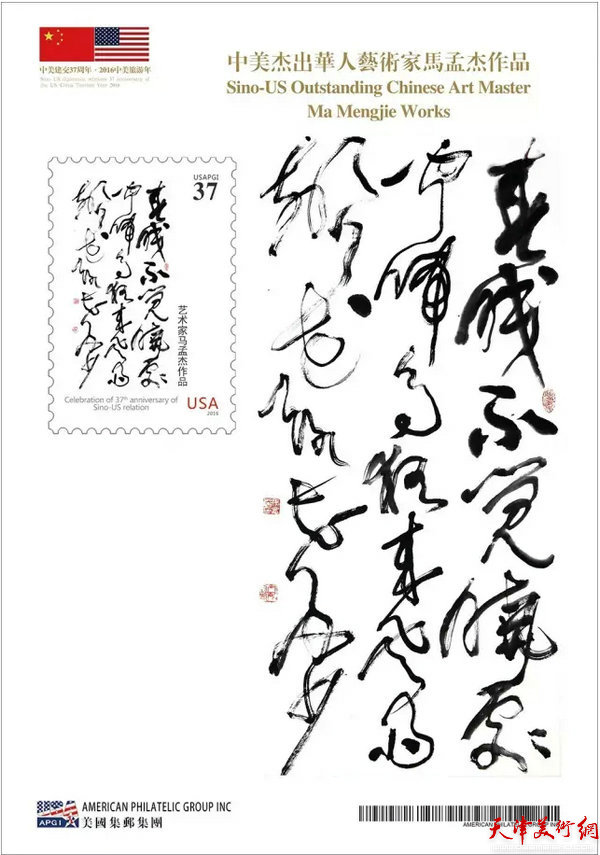 中美建交37周年·2016中美旅游年
Sino-US diplomatic relations 37 anniversary of
the US-China Tourism Year 2016
中美杰出華人藝術家馬孟杰作品
Sino-US Outstanding Chinese Art Master
Ma Mengjie Works
USAPGI
37
艺术家马孟杰作品
Celebration of 37th anniversary of
Sino-US relation
USA
2016
春眠不覺曉處々
聞啼鳥夜來風雨
聲花落知多少
APGI
AMERICAN PHILATELIC GROUP INC
美國集郵集團
AMERICAN PHILATELIC GROUP INC.
天津美術網